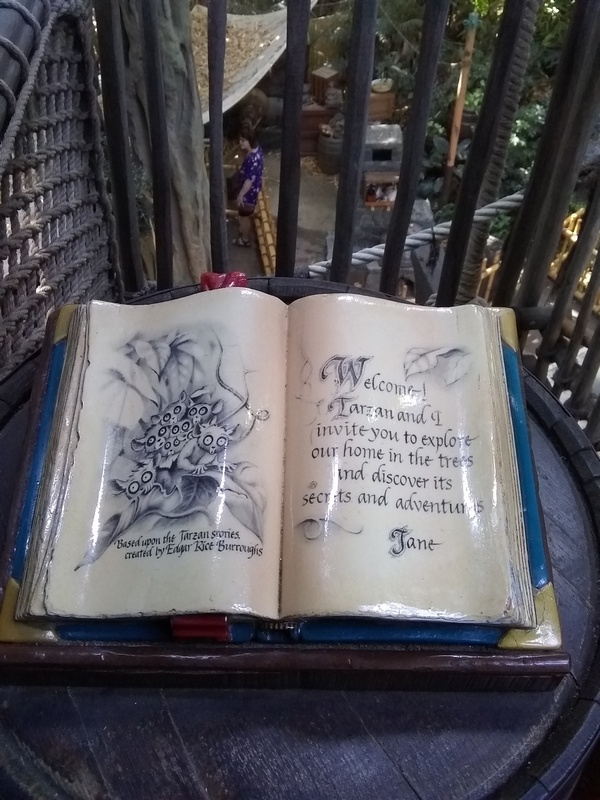 Based upon the Tarzan stories
created by Edgar Rice Burroughs
Welcome!
Tarzan and I
invite you to explore
our home in the trees
and discover its
secrets and adventures
Jane